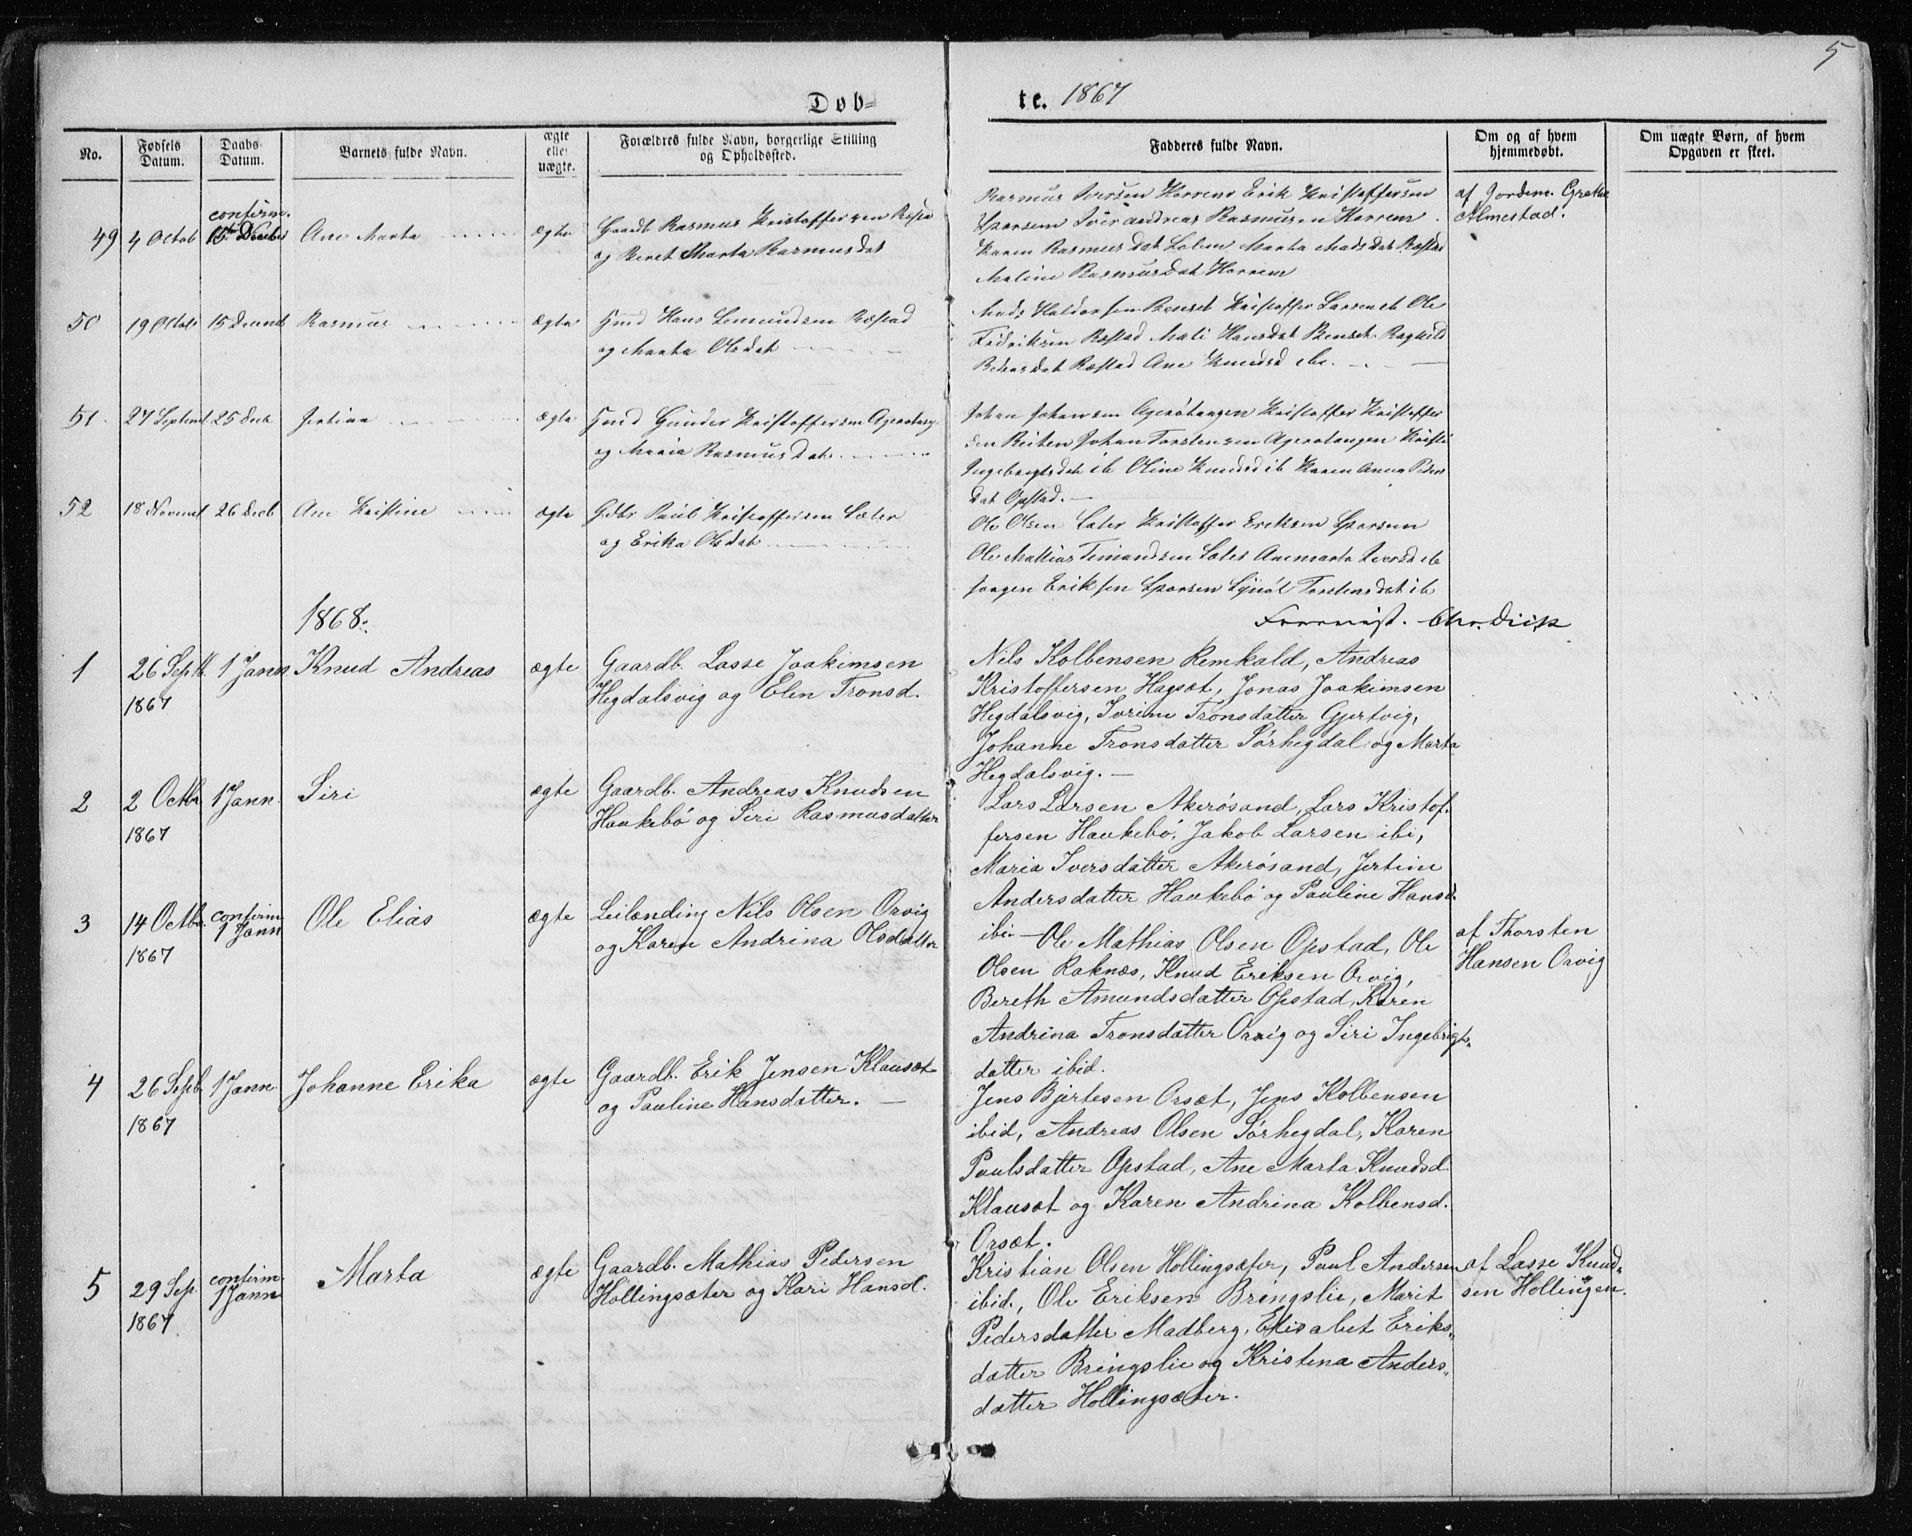 5
Døb=
te. 1867
No.
Fødsels Datum.
Daabs Datum.
Barnets fulde Navn.
ægte eller uægte.
Forældres fulde Navn, borgerlige Stilling og Opholdssted.
Fadderes fulde Navn.
Om og af hvem hjemmedøbt.
Om uægte Børn, af hvem Opgaven er skeet.
49 4 Octob confirm. 15 Decbr Ane Marta ægte
Gaardb Rasmus Kristoffersen
og Beret Marta Rasmusdat
Rasmus Iversen Horrem Erik Kristoffersen
Andreas Rasmusen Horrem
Karen Rasmusdat Marta Madsdat
Maline Rasmusdat Horrem
af Jordem. Grethe
Almestad.
50 19 Octob 15 Decemb Rasmus ægte
Hmd Hans Ræstad
og Marta Olsdat
Mads Haldorsen Kristoffer Larsen Ole
Fredriksen Ræstad Mali Hansdat Ragnild
Ræstad Ane Knudsd ibi.
51. 27 Septemb 25 Decb Jertina ægte
Hmd Gunder Kristoffersen
og Maria Rasmusdat
Johan Johansen Agerøtangen Kristoffer Kristoffer
sen Reiten Johan Torstensen Agerøtangen
Ingebrigtsdat ib Oline Knudsd ib Karen Anna Peders
dat Opstad.
52 18 Novemb 26 Decb Ane Kristine ægte
Gdbr Paul Kristoffersen Sæter
og Erika Olsdat
Ole Olsen Sæter Kristoffer Eriksen Sporsem
Ole Mattias Sæter Anemarta Iversd ib
Jørgen Eriksen Sporsem Torstensdat ib
1868.
1 26 Septb. 1867 1 Jann Knud Andreas ægte
Gaardb. Lasse Joakimsen
Hegdalsvig og Elen Tronsd.
Nils Kolbensen Remkald, Andreas
Kristoffersen Hagset, Jonas Joakimsen
Hegdalsvig, Ivrine Tronsdatter Gjertvig,
Johanne Tronsdatter Sørhegdal og Marta
Hegdalsvig.
2 2 Octbr 1867 1 Jann. Siri ægte
Gaardb. Andreas Knudsen
Haukebø og Siri Rasmusdatter
Lars Larsen Akerøsand, Lars Kristof-
fersen Haukebø, Jakob Larsen ibi,
Maria Iversdatter Akerøsand, Jertine
Andersdatter Haukebø og Pauline Hansd.
ibi.
3 14 Octbr. 1867 confirm 1 Jann Ole Elias ægte
Leilænding Nils Olsen Orvig
og Karen Andrina Olsdatter
Ole Mathias Olsen Opstad, Ole
Olsen Raknæs, Knud Eriksen Orvig,
Bereth Amundsdatter Opstad, Karen
Andrina Tronsdatter Orvig og Siri Ingebrigt-
datter ibid.
af Thorsten
Hansen Orvig
4 26 Septb. 1867 1 Jann Johanne Erika ægte
Gaardb. Erik Jensen Klauset
og Pauline Hansdatter.
Jens Bjørtesen Orsæt, Jens Kolbensen
ibid, Andreas Olsen Sørhegdal, Karen
Paulsdatter Opstad, Ane Marta Knudsd
Klauset og Karen Andrina Kolbensd.
Orsæt.
5 29 Sep 1867 confirm 1 Jann Marta ægte
Gaardb. Mathias Pedersen
Hollingsæter og Kari Hansd.
Kristian Olsen Hollingsæter, Paul Andersen
ibid., Ole Eriksen Bringslie, Marit
Pedersdatter Madberg, Elisabet Eriks-
datter Bringslie og Kristina Anders-
datter Hollingsæter.
af Lasse Knud-
sen Hollingen.